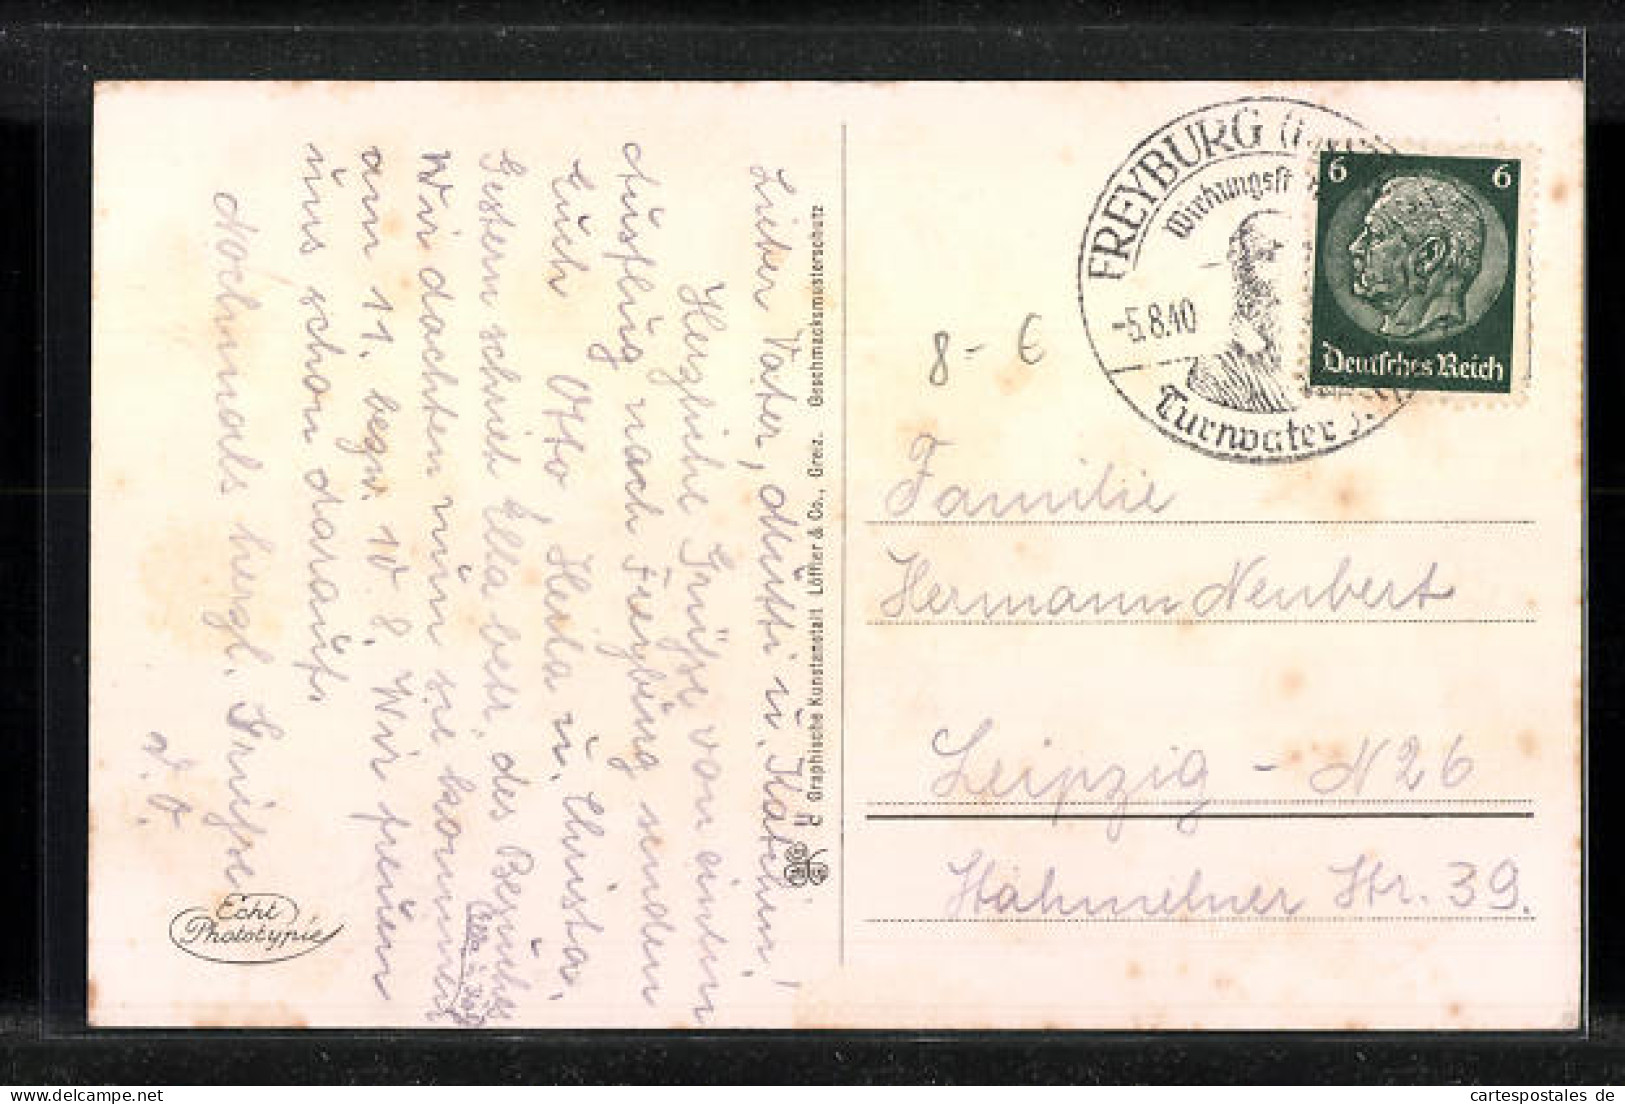 Lieber Vater, Mutti u. Katchen!
Herzliche Grüße von einem
Ausflug nach Freyburg senden
Euch Otto Herta u. Christa.
Gestern schrieb Ella betr. des Besuches
Wir dachten nun sie kommen
am 11. bezw. 10. 8. Wir freuen
uns schon darauf.
Nochmals herzl. Grüße
D. O.
Echt
Phototypie
C Graphische Kunstanstalt Löffler & Co., Greiz. Geschmacksmusterschutz
FREYBURG
Wirkungsst
-5.8.40
Turnvater
6 6
Deutsches Reich
8 - €
Familie
Hermann Neubert
Leipzig - N 26
Hahmelner Str. 39.
cartespostales de